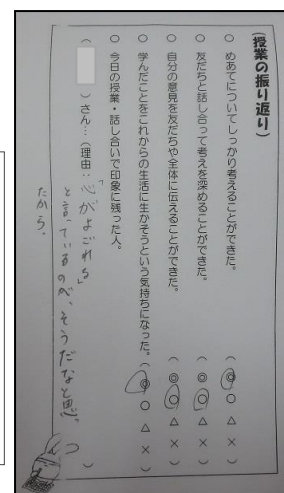 (授業の振り返り)
○ めあてについてしっかり考えることができた。 ( ◎ ○ △ × )
○ 友だちと話し合って考えを深めることができた。 ( ◎ ○ △ × )
○ 自分の意見を友だちや全体に伝えることができた。 ( ◎ ○ △ × )
○ 学んだことをこれからの生活に生かそうという気持ちになった。( ◎ ○ △ × )
○ 今日の授業・話し合いで印象に残った人。
( )さん…(理由:「心がよごれる」
と言っているのべ、そうだなと思っ )
たから。